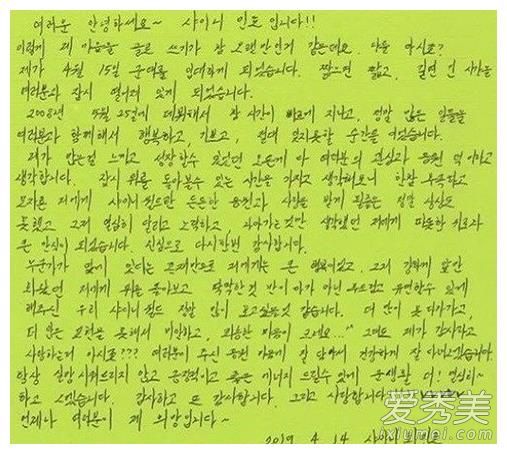 여러분 안녕하세요~ 샤이니 민호 입니다!!
이렇게 제 마음을 글로 쓰기가 참 오랜만인거 같은데요. 다들 아시죠?
제가 4월 15일 군대를 입대하게 되었습니다. 짧으면 짧고, 길면 긴 시간을
여러분과 잠시 떨어져 있게 되었습니다.
2008년 5월 25일에 데뷔해서 참 시간이 빠르게 지나고, 정말 많은 일들을
여러분과 함께해서 행복하고, 기쁘고 절대 잊지못할 순간을 여었습니다.
제가 많은걸 느끼고 성장할수 있었던 모든게 다 여러분의 관심과 응원 덕이라고
생각합니다. 잠시 뒤를 돌아볼수 있는 시간을 가지고 생각해보니 한참 부족하고
모자른 저에게 샤이니월드란 든든한 응원과 사랑을 받게 될줄은 정말 상상도
못했고 그저 열심히 달리고 노력하고 나아가는것만 생각했던 저에게 따뜻한 위로가
큰 안식이 되었습니다. 진심으로 다시한번 감사합니다.
누군가가 옆에 있다는 존재만으로 저에게는 큰 행운이었고, 그저 강하게 앞만
봐왔던 저에게 뒤를 돌아보고 딱딱한것 만이 아닌 부드럽고 유연할수 있게
해주신 우리 샤이니월드 정말 많이 보고싶을것 같습니다. 더 많이 못 다가가고,
더 많은 표현을 못해서 미안하고, 죄송한 마음이 크네요..."" 그래도 제가 감사하고
사랑하는거 아시죠??? 여러분이 주신 응원 마음에 잘 담아서 건강하게 잘 다녀오겠습니다.
항상 실망 시켜드리지 않고 긍정적이고 좋은 에너지 드릴수 있게 군생활 더! 열심히~
하고 오겠습니다. 감사하고 또 감사합니다. 그리고 사랑합니다!!
언제나 여러분이 제 희망입니다~
2019. 4. 14 샤이니 민호
爱秀美
ixiumei.com